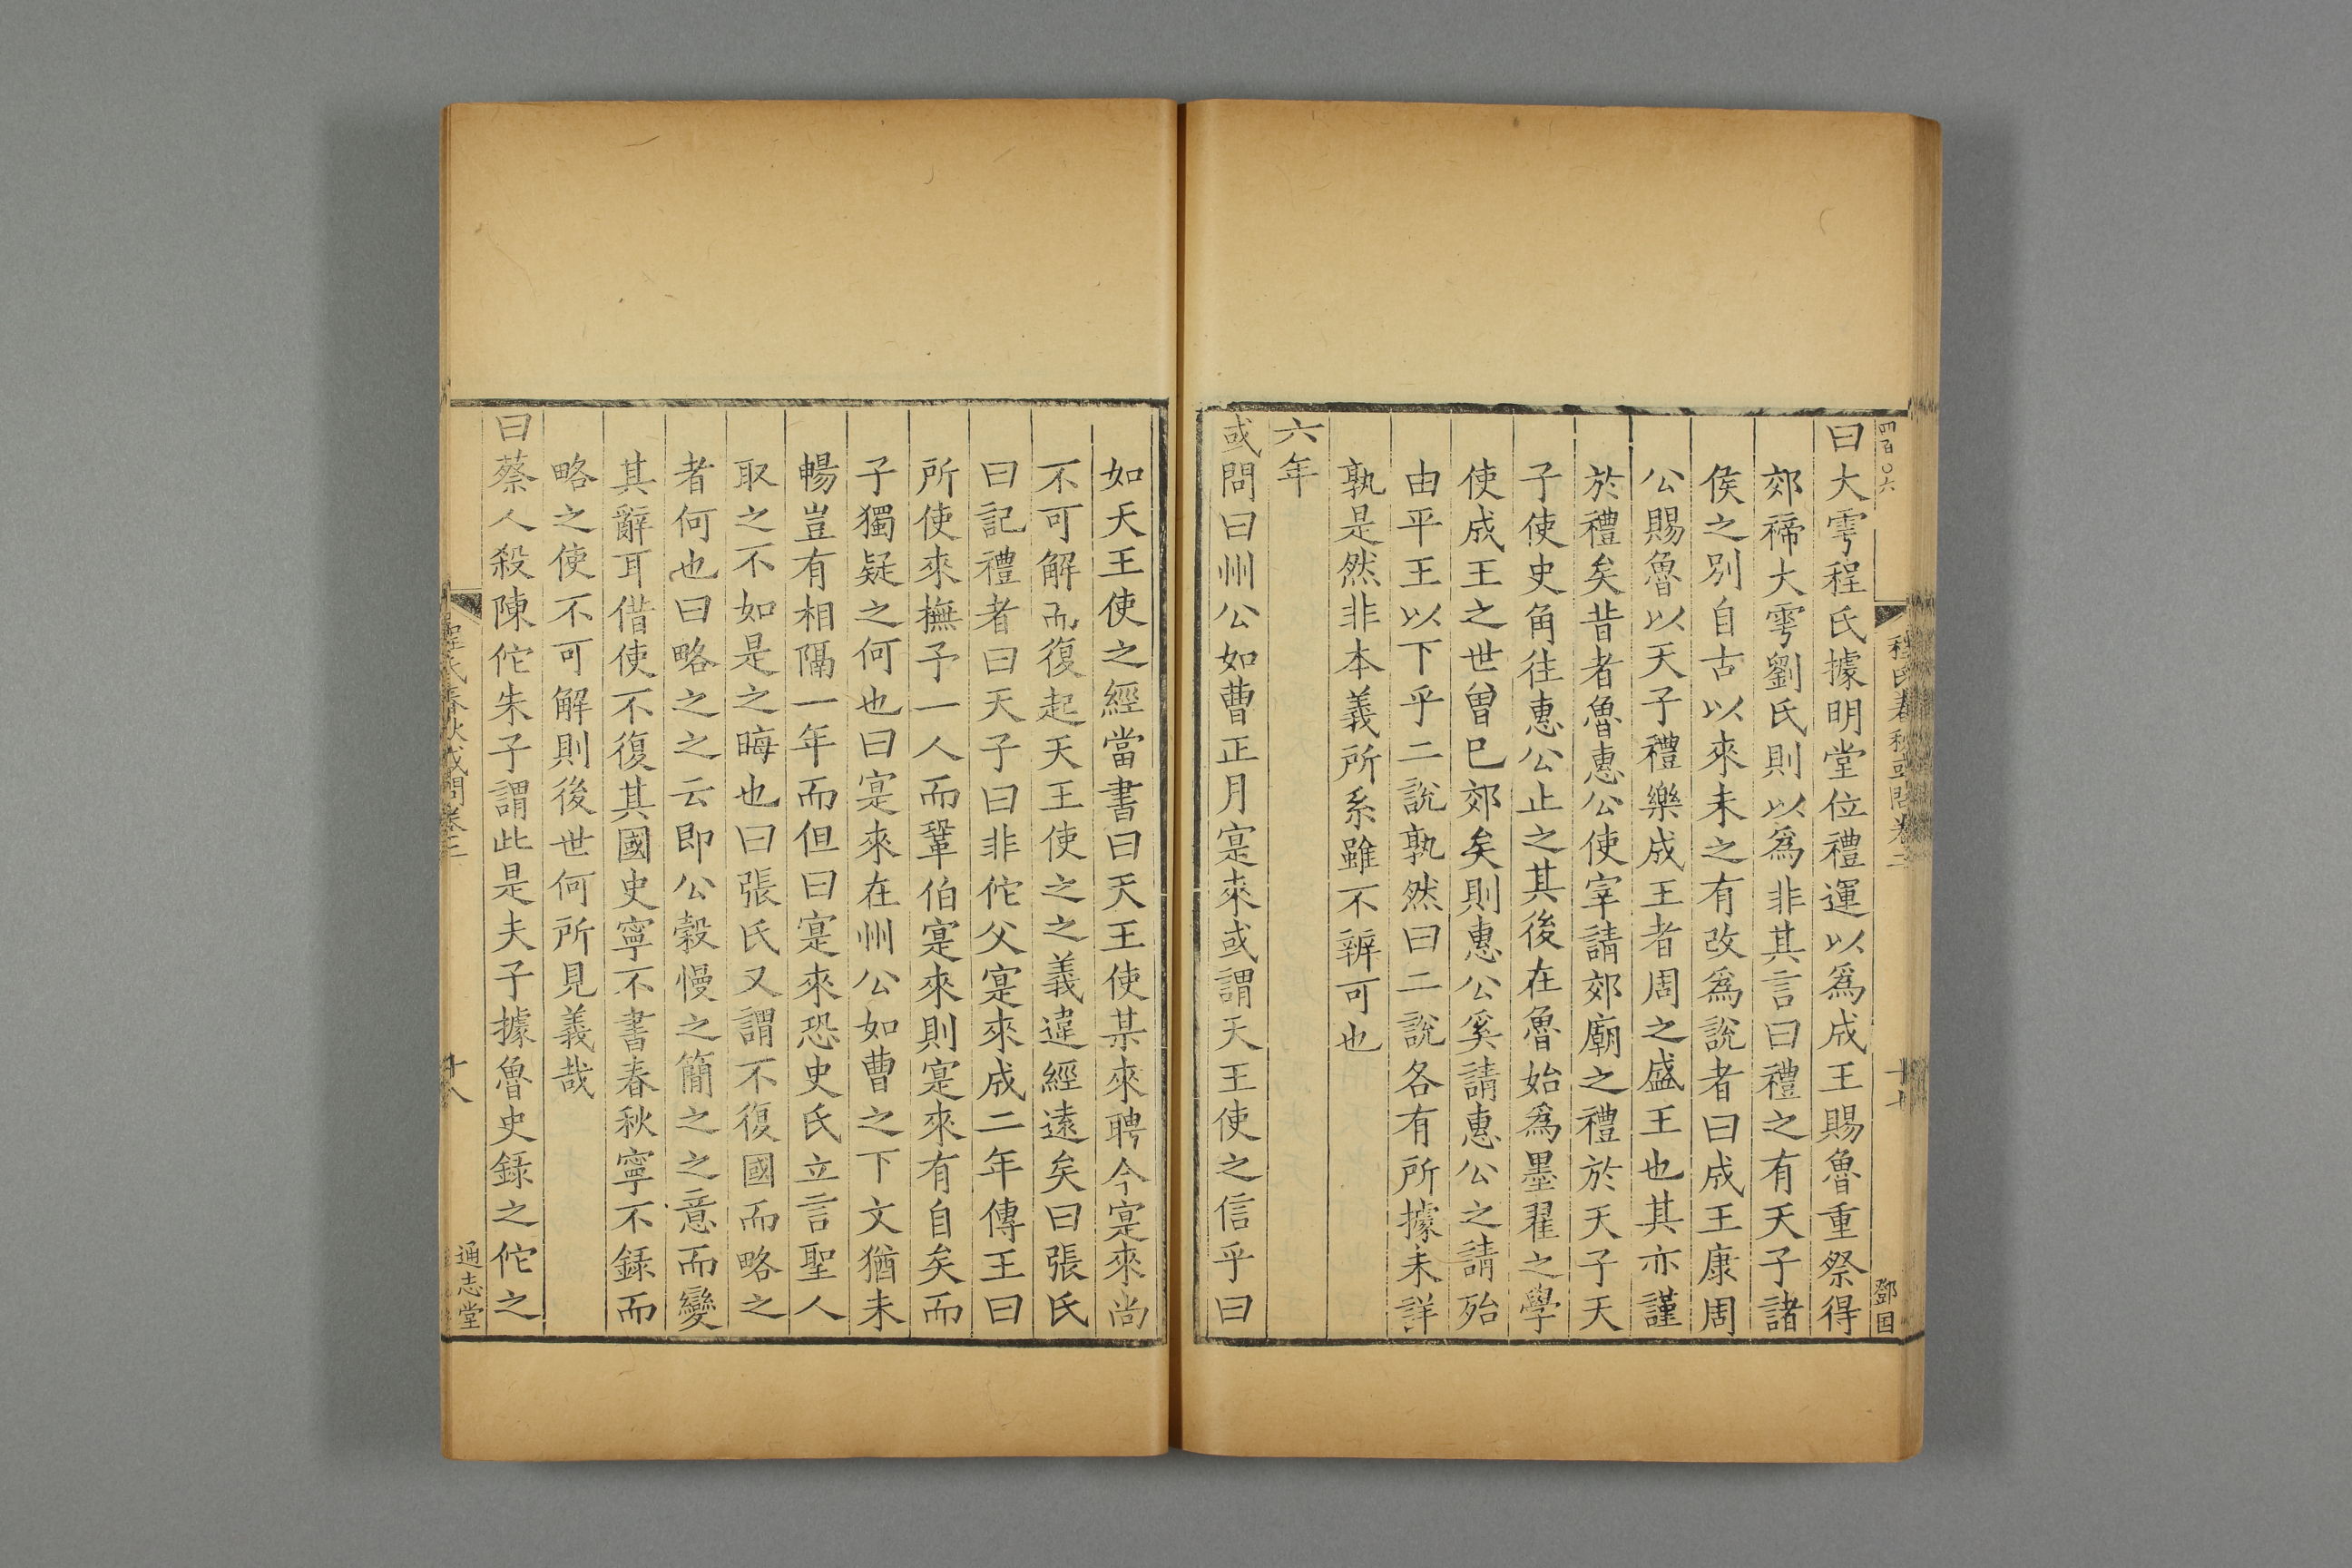 四百〇六
程氏春秋或問卷三
鄧囯
曰大雩程氏據明堂位禮運以爲成王賜魯重祭得
郊禘大雩劉氏則以爲非其言曰禮之有天子諸
侯之別自古以來未之有改爲說者曰成王康周
公賜魯以天子禮樂成王者周之盛王也其亦謹
於禮矣昔者魯惠公使宰請郊廟之禮於天子天
子使史角往惠公止之其後在魯始爲墨翟之學
使成王之世曾已郊矣則惠公奚請惠公之請殆
由平王以下乎二說孰然曰二說各有所據未詳
孰是然非本義所系雖不辨可也
六年
或問曰州公如曹正月寔來或謂天王使之信乎曰
如天王使之經當書曰天王使某來聘今寔來尚
不可解而復起天王使之之義違經遠矣曰張氏
曰記禮者曰天子曰非佗父寔來成二年傳王曰
所使來撫予一人而鞏伯寔來則寔來有自矣而
子獨疑之何也曰寔來在州公如曹之下文猶未
暢豈有相隔一年而但曰寔來恐史氏立言聖人
取之不如是之晦也曰張氏又謂不復國而略之
者何也曰略之之云即公穀慢之簡之之意而變
其辭耳借使不復其國史寧不書春秋寧不録而
略之使不可解則後世何所見義哉
曰蔡人殺陳佗朱子謂此是夫子據魯史録之佗之
程氏春秋或問卷三
十八
通志堂